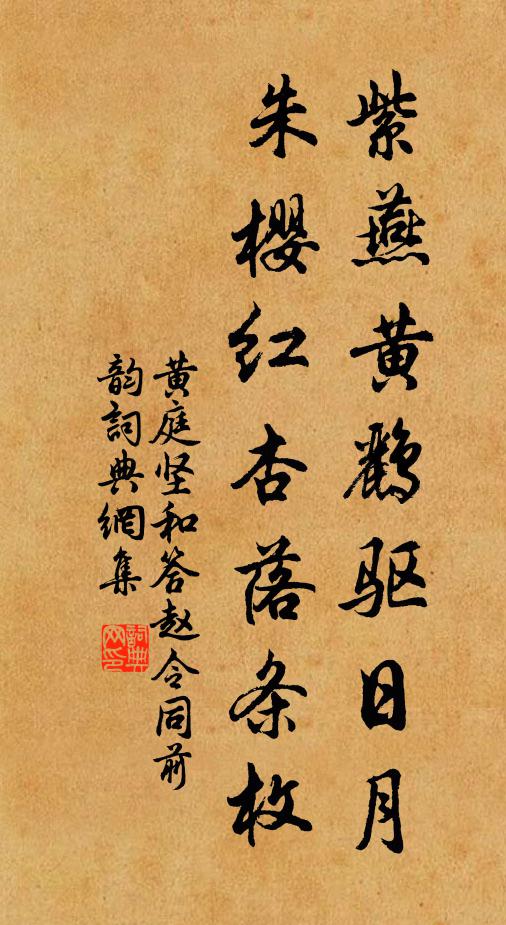 紫燕黄鹂驱日月
朱櫻红杏落条枚
黄庭坚和答趙令同前
韵詞典網集
詞典网印